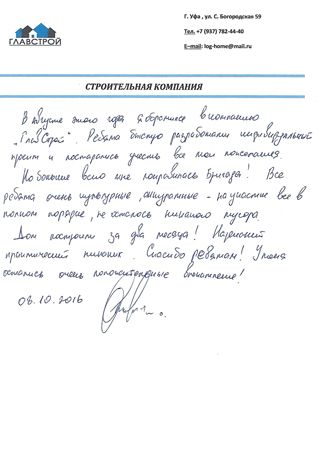 ГЛАВСТРОЙ
Г. Уфа , ул. С. Богородская 59
Тел. +7 (937) 782-44-40
E-mail: log-home@mail.ru
СТРОИТЕЛЬНАЯ КОМПАНИЯ
В августе этого года я обратился в компанию
„ГлавСтрой". Ребята быстро разработали индивидуальный
проект и постарались учесть все мои пожелания.
Но больше всего мне понравилась бригада! Все
ребята очень культурные, аккуратные - на участке все в
полном порядке, не осталось никакого мусора.
Дом построили за два месяца! Надежный
практичный Спасибо ребятам! У меня
остались очень положительные впечатления!
08.10.2016